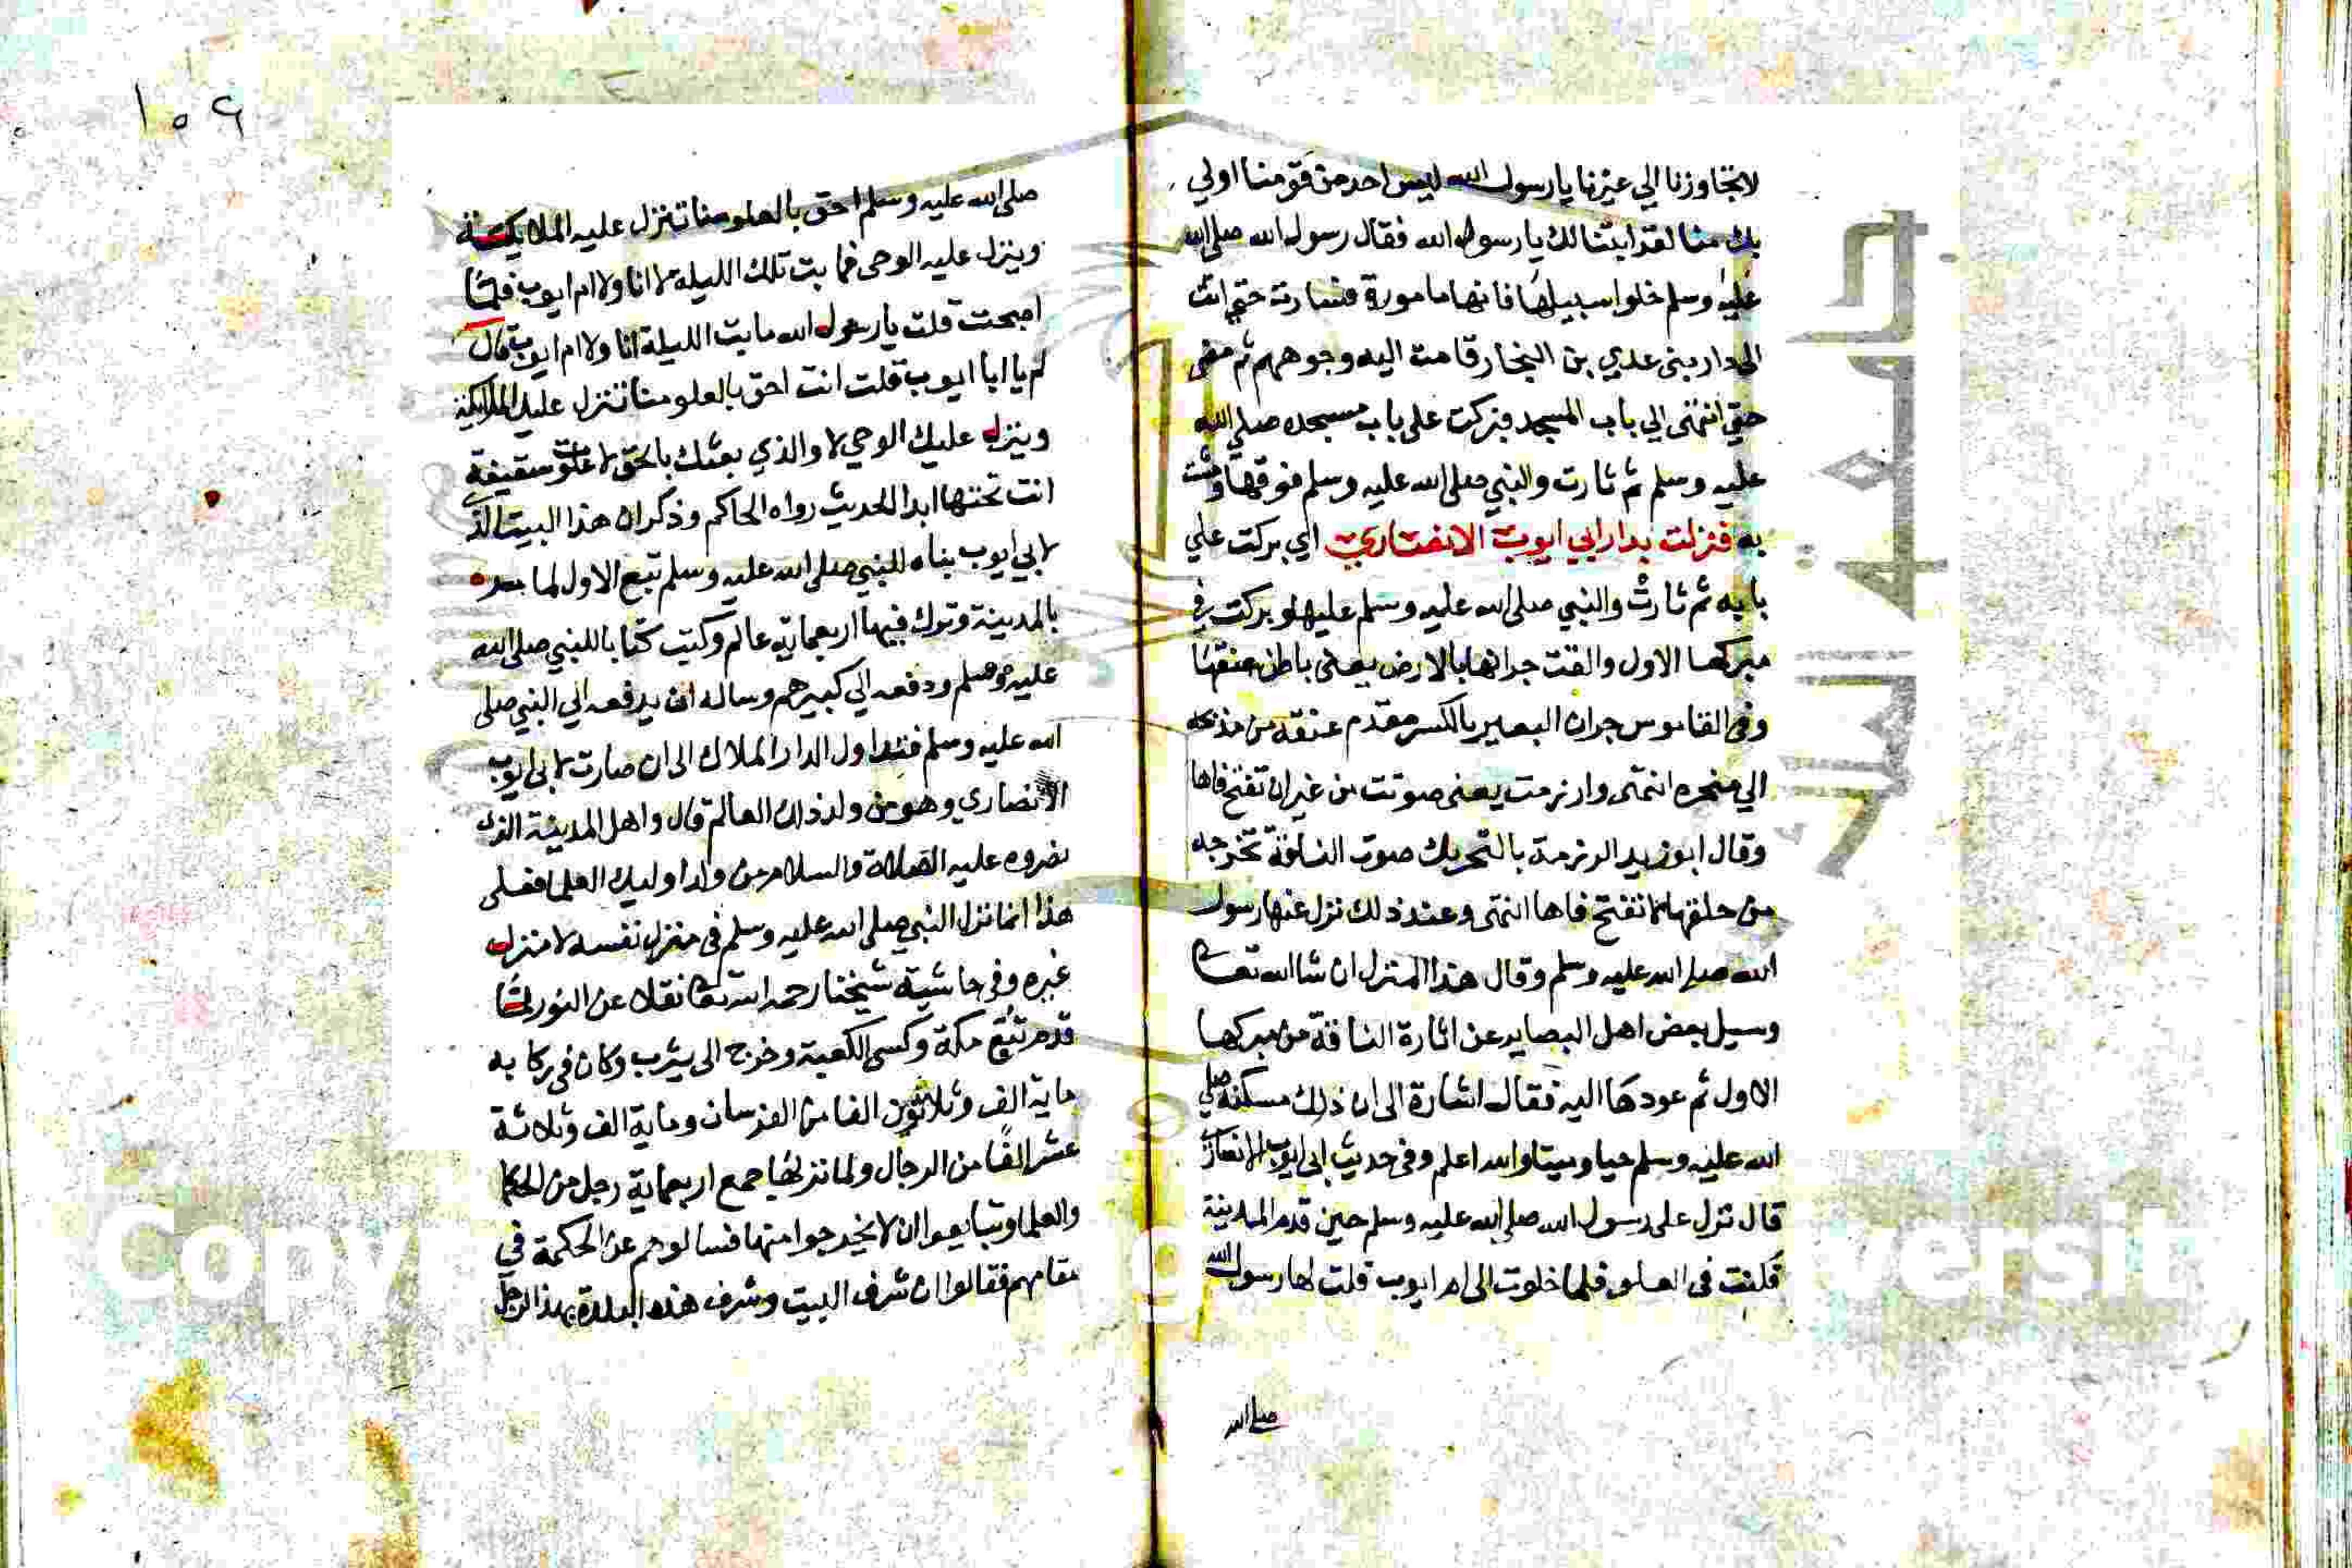 لا تجاوزنا الي غيرنا يا رسول الله ليس احد من قومنا اولي
بك منا لقد ابتنا لك يا رسول الله فقال رسول الله صلى الله
عليه وسلم خلوا سبيلها فانها مامورة فسارت حتى اتت
الى دار بنى عدي بن النجار قامت اليه وجوههم ثم مضى
حتي انتهى الي باب المسجد فبركت على باب مسجده صلى الله
عليه وسلم ثم ثارت والنبي صلى الله عليه وسلم فوقها ومشت
به فنزلت بدار ابي ايوب الانصاري اي بركت علي
بابه ثم ثارت والنبي صلى الله عليه وسلم عليها وبركت في
مبركها الاول والقت جرانها بالارض يعنى باطن عنقها
وفى القاموس جران البعير بالكسر مقدم عنقه من مذبحه
الي منحره انتهى وارزمت يعنى صوتت من غير ان تفتح فاها
وقال ابو زيد الرزمة بالتحريك صوت الناقة تخرجه
من حلقها لا تفتح فاها انتهى وعند ذلك نزل عنها رسول
الله صلى الله عليه وسلم وقال هذا المنزل ان شا الله تعا
وسيل بعض اهل البصاير عن اثارة الناقة من مبركها
الاول ثم عودها اليه فقال اشارة الى ان ذلك مسكنه صلي
الله عليه وسلم حيا وميتا والله اعلم وفى حديث ابى ايوب الانصاري
قال نزل على رسول الله صلى الله عليه وسلم حين قدم المدينة
فكنت فى العلو فلما خلوت الى ام ايوب قلت لها رسول الله
صلى الله
١٥٤
صلى الله عليه وسلم احق بالعلو منا تنزل عليه الملايكة
وينزل عليه الوحى فما بت تلك الليلة لا انا ولا ام ايوب فلما
اصبحت قلت يا رسول الله ما بت الليلة انا ولا ام ايوب قال
لم يا ابا ايوب قلت انت احق بالعلو منا تنزل عليك الملايكة
وينزل عليك الوحي لا والذي بعثك بالحق لا علوت سقيفة
انت تحتها ابدا الحديث رواه الحاكم وذكر ان هذا البيت الذي
لابي ايوب بناه للنبي صلى الله عليه وسلم تبع الاول لما مر
بالمدينة وترك فيها اربعماية عالم وكتب كتابا للنبي صلى الله
عليه وسلم ودفعه الي كبيرهم وساله ان يدفعه الي النبي صلى
الله عليه وسلم فتداول الدار الملاك الى ان صارت لابى ايوب
الانصاري وهو من ولد ذلك العالم قال واهل المدينة الذين
نصروه عليه الصلاة والسلام من ولد اوليك العلما فعلى
هذا انما نزل النبي صلى الله عليه وسلم فى منزل نفسه لا منزل
غيره وفى حاشية شيخنا رحمه الله تعا نقلا عن النور لما
قدم تبع مكة وكسى الكعبة وخرج الى يثرب وكان فى ركابه
ماية الف وثلاثون الفا من الفرسان وماية الف وثلاثة
عشر الفا من الرجال ولما نزلها جمع اربعماية رجل من الحكما
والعلما وتبايعوا ان لا يخرجوا منها فسالوهم عن الحكمة في
مقامهم فقالوا ان شرف البيت وشرف هذه البلدة بهذا الرجل